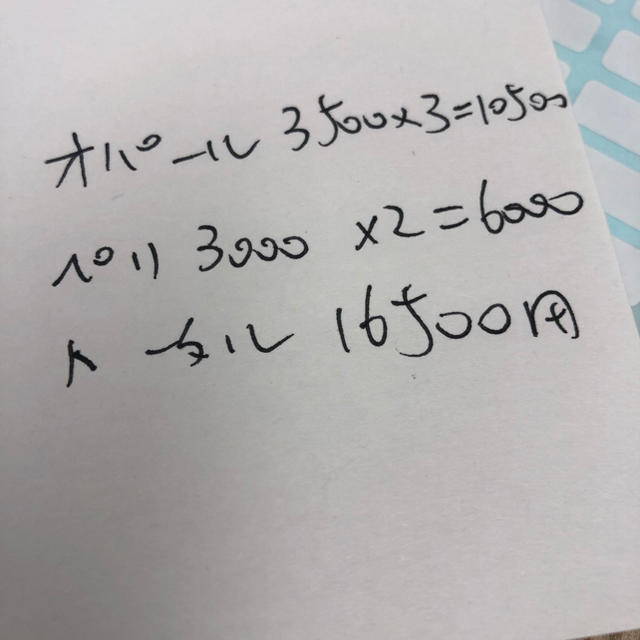 オパール 3500×3=10500
ペリ 3000 ×2=6000
トータル 16500円